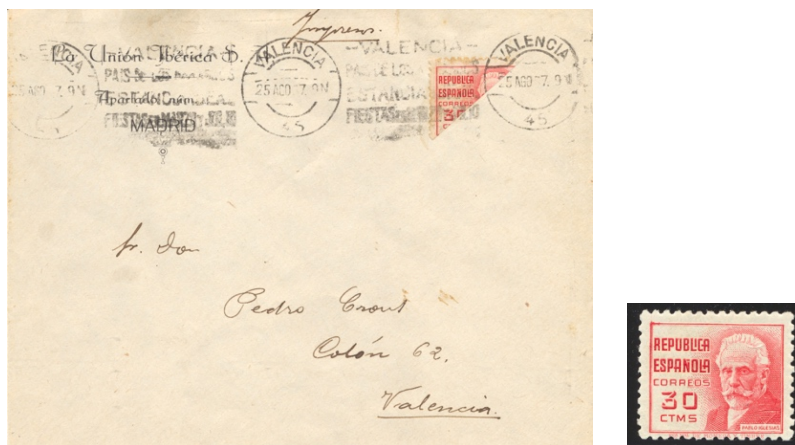 Impresos.
La Unión Ibérica S. A.
Apartado
MADRID
VALENCIA
25 AGO 37. 9 N
45
-VALENCIA-
PAIS DE LOS
ESTANCIA
FIESTAS
REPUBLICA
ESPAÑOLA
CORREOS
30
VALENCIA
25 AGO 37. 9 N
45
Sr. Don
Pedro
Colón 62.
Valencia.
REPUBLICA
ESPAÑOLA
CORREOS
30
CTMS
PABLO IGLESIAS